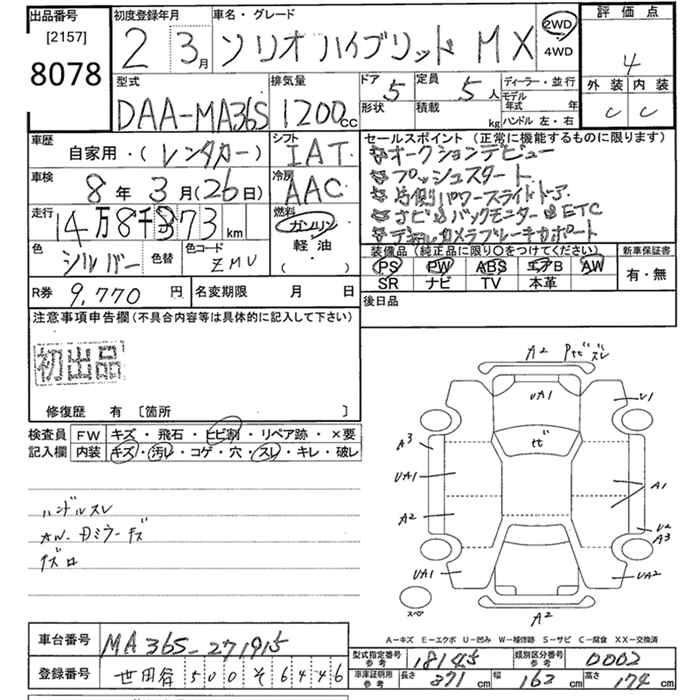 出品番号
[2157]
8078
初度登録年月
2 3月
車名・グレード
ソリオハイブリッド MX
2WD
4WD
評価点
4
外装 内装
C C
型式
DAA-MA36S
排気量
1200cc
ドア 5
形状
定員 5人
積載 kg
ディーラー・並行
モデル年式 年式
ハンドル 左・右
車歴
自家用・(レンタカー)
シフト
IAT
車検
8年3月(26日)
冷房
AAC
走行
14万8千873km
燃料
ガソリン
軽油
(・)
色
シルバー
色替
色コード
ZMU
R券 9,770円
名変期限 月 日
セールスポイント(正常に機能するものに限ります)
☆オークションデビュー
☆プッシュスタート
☆片側パワースライドドア
☆ナビ&バックモニター&ETC
☆デュアルカメラブレーキサポート
装備品(純正品に限り○をつけてください)
PS PW ABS エアB AW
SR ナビ TV 本革
新車保証書
有・無
後日品
注意事項申告欄(不具合内容等は具体的に記入して下さい)
初出品
修復歴 有 [箇所 ]
検査員記入欄
FW キズ・飛石・ヒビ割・リペア跡・×要
内装 キズ・汚レ・コゲ・穴・スレ・キレ・破レ
ハンドルスレ
AW.Dミラーキズ
イズロ
A2 Pビスレ
UA1
U1
A3
ヒビ
UA1
A1
A2
U2
A3
UA1
UA2
スペ
A2
A-キズ E-エクボ U-凹み W-補修跡 S-サビ C-腐食 XX-交換済
車台番号
MA36S-271915
登録番号
世田谷 500 そ 6446
型式指定番号
参考
18145
類別区分番号
参考
0002
車庫証明用
参考
長さ 371cm
幅 162cm
高さ 174cm